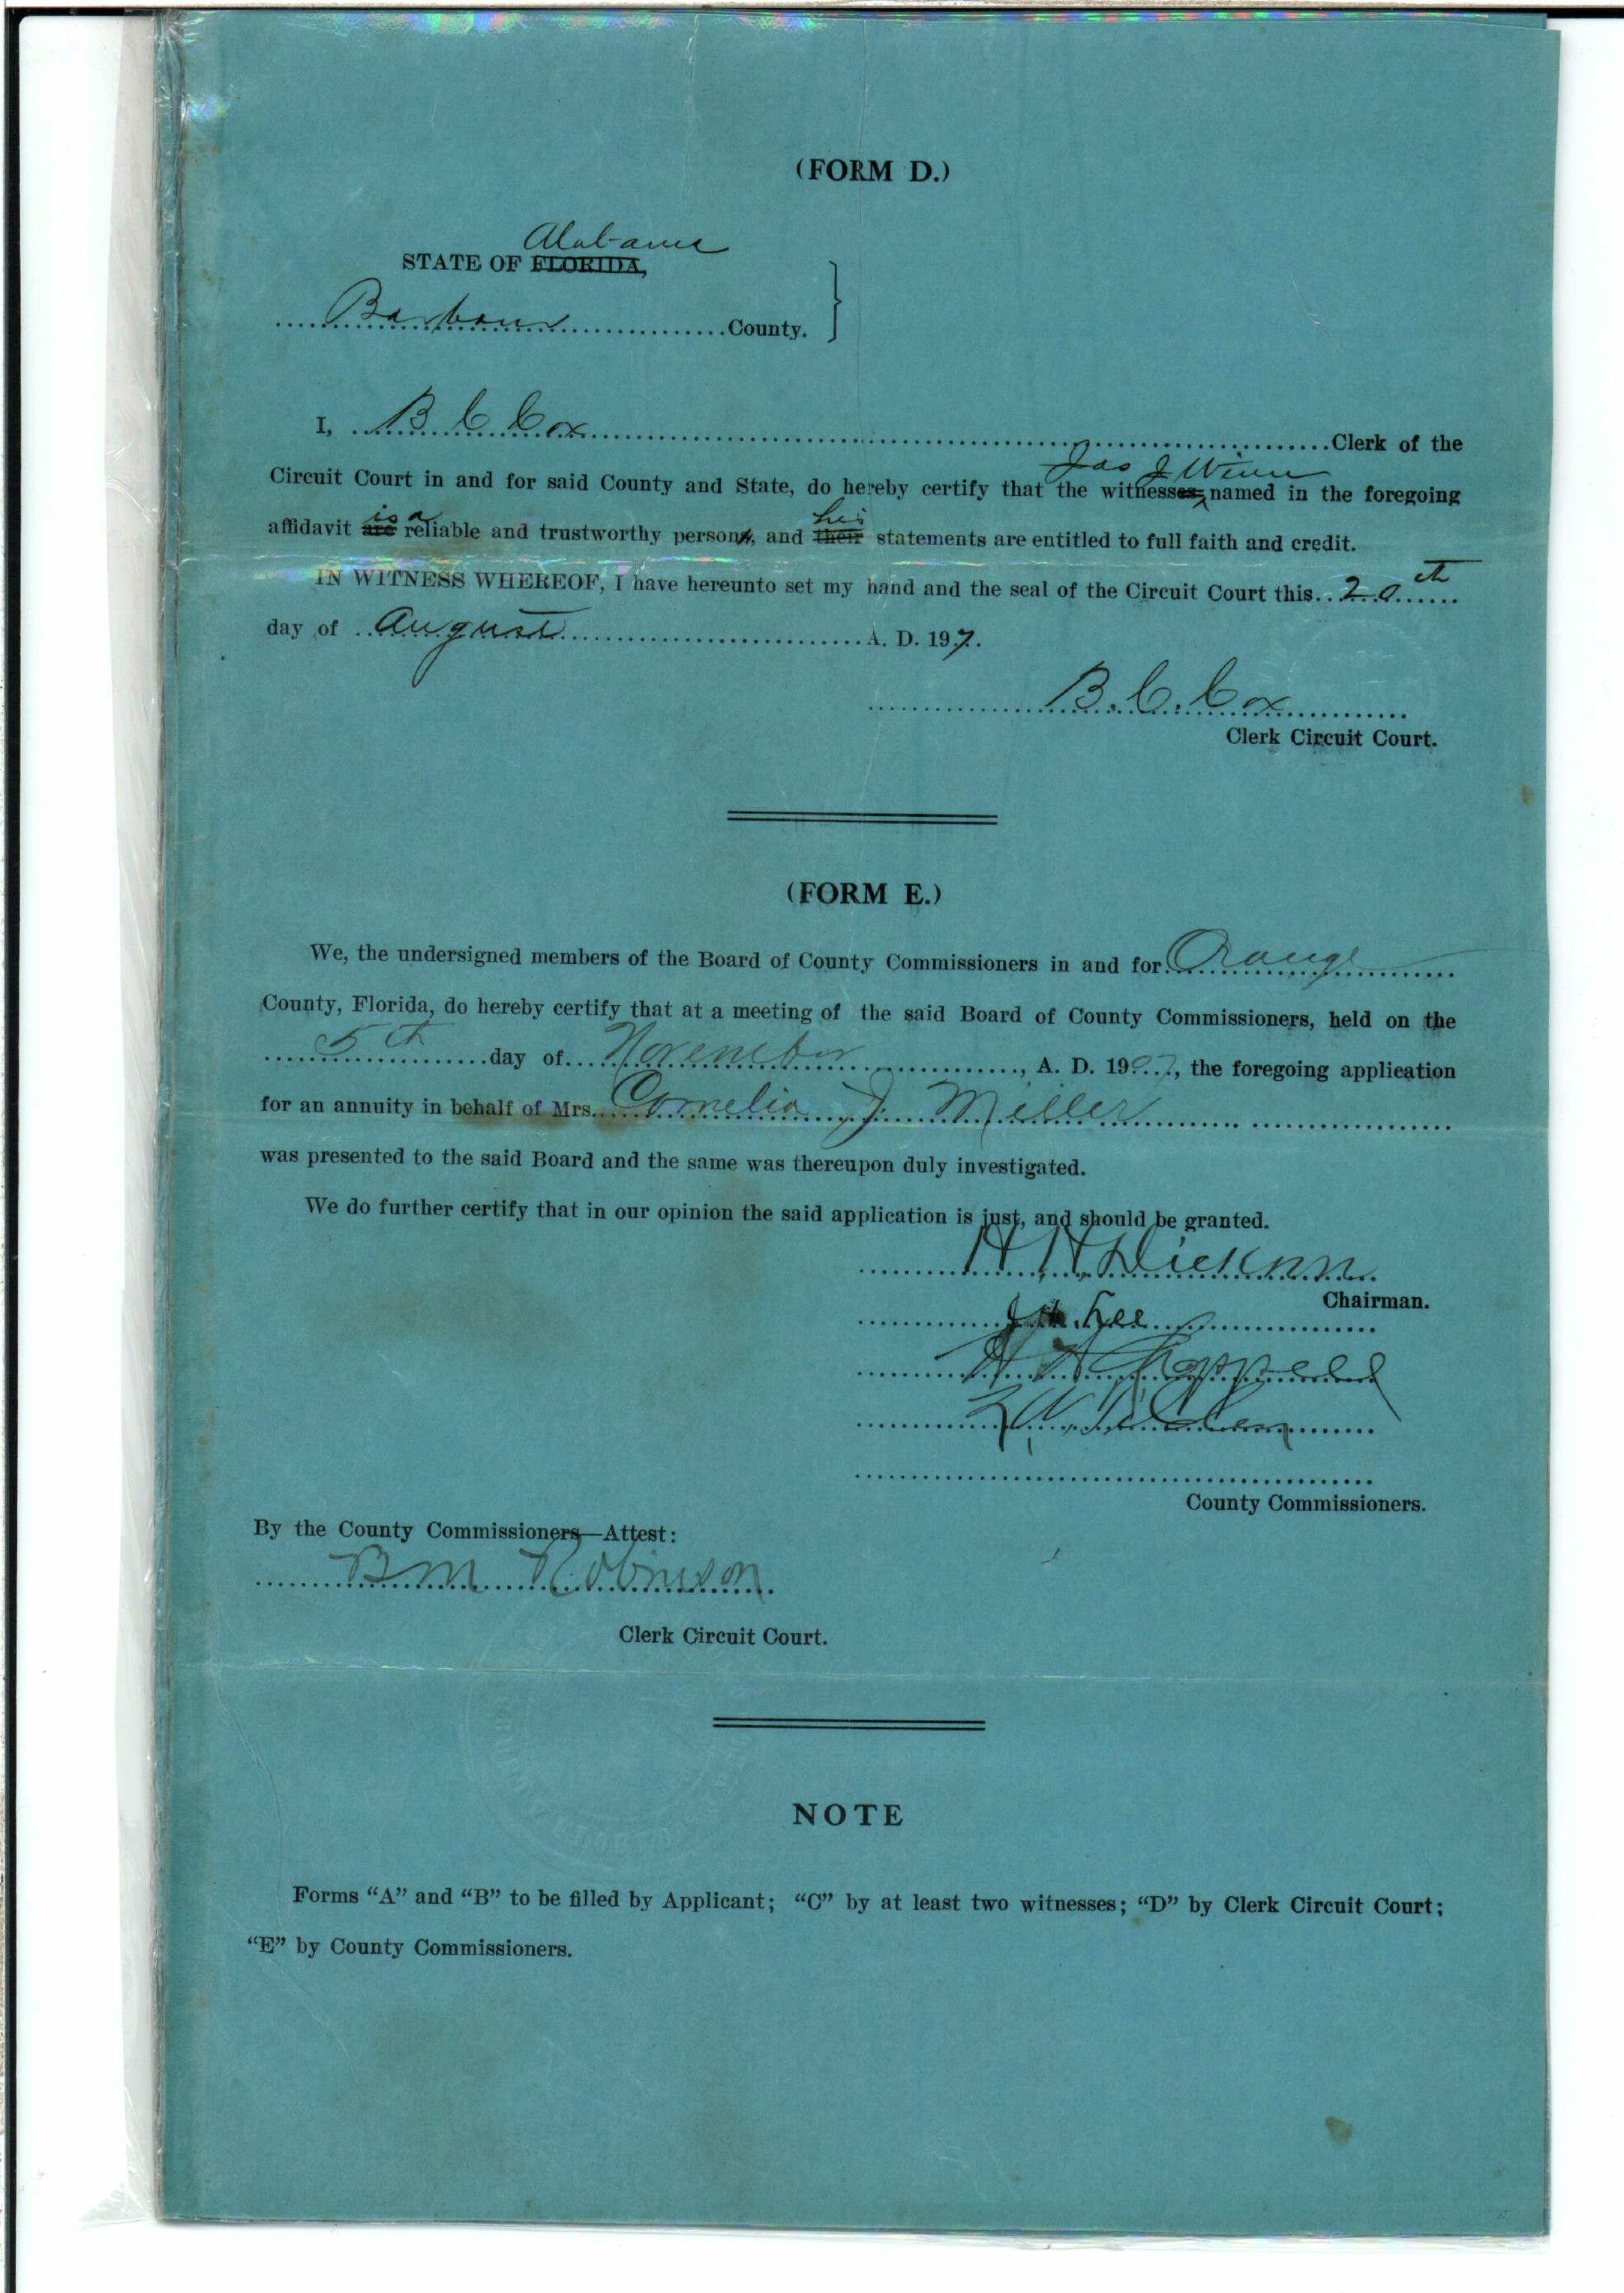 (FORM D.)
Alabama
STATE OF FLORIDA,
Barbour County.
I, B C Cox Clerk of the
Jas J Winn
Circuit Court in and for said County and State, do hereby certify that the witnesses named in the foregoing
is a his
affidavit are reliable and trustworthy persons, and their statements are entitled to full faith and credit.
IN WITNESS WHEREOF, I have hereunto set my hand and the seal of the Circuit Court this 20th
day of August A. D. 197.
B. C. Cox
Clerk Circuit Court.
(FORM E.)
We, the undersigned members of the Board of County Commissioners in and for Orange
County, Florida, do hereby certify that at a meeting of the said Board of County Commissioners, held on the
5th day of November, A. D. 1907, the foregoing application
for an annuity in behalf of Mrs. Cornelia J. Miller
was presented to the said Board and the same was thereupon duly investigated.
We do further certify that in our opinion the said application is just, and should be granted.
H H Dickson
Chairman.
J H. Lee
Chappell
County Commissioners.
By the County Commissioners—Attest:
B M Robinson
Clerk Circuit Court.
NOTE
Forms “A” and “B” to be filled by Applicant; “C” by at least two witnesses; “D” by Clerk Circuit Court;
“E” by County Commissioners.